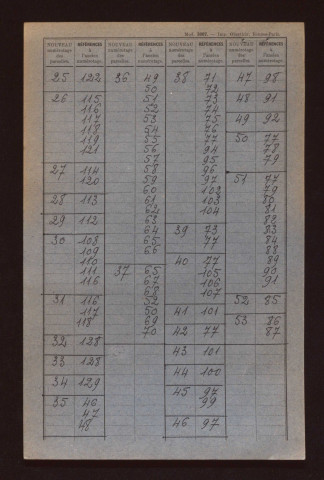 NOUVEAU numérotage des parcelles. RÉFÉRENCES à l'ancien numérotage.
NOUVEAU numérotage des parcelles. RÉFÉRENCES à l'ancien numérotage.
NOUVEAU numérotage des parcelles. RÉFÉRENCES à l'ancien numérotage.
NOUVEAU numérotage des parcelles. RÉFÉRENCES à l'ancien numérotage.
25 122
26 115
116
117
118
119
121
27 114
120
28 113
29 112
30 108
109
110
111
116
31 116
117
118
32 128
33 128
34 129
35 46
47
48
36 49
50
51
52
53
54
55
56
57
58
59
60
61
62
63
64
65
66
37 65
67
68
52
50
69
70
38 71
72
73
74
75
76
77
94
95
96
97
102
103
104
39 73
77
40 77
105
106
107
41 101
42 77
43 101
44 100
45 97
99
46 97
47 98
48 91
49 92
50 77
78
79
51 77
79
80
81
82
83
84
88
89
90
91
52 85
53 86
87